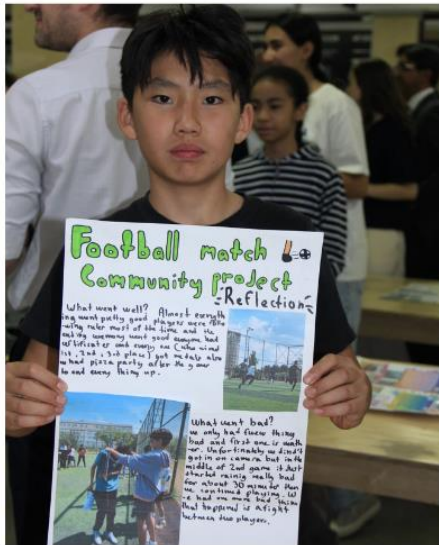 Football match
Community project
Reflection
What went well? Almost everyth
ing went pretty good players were follo
wing rules most of the time and the
ending ceremony went good everyone had
certificates and every one (who wined
1st, 2nd, 3rd place) got medals also
we had pizza party after the games
to end every thing up.
What went bad?
we only had fiew thing
bad and first one is weath
er. Unfortinatly we didn't
got in on camera but in the
middle of 2nd game it just
started rainig really bad
for about 30 minutes then
we continued playing. We
had one more bad thing
that happened is a fight
between two players.